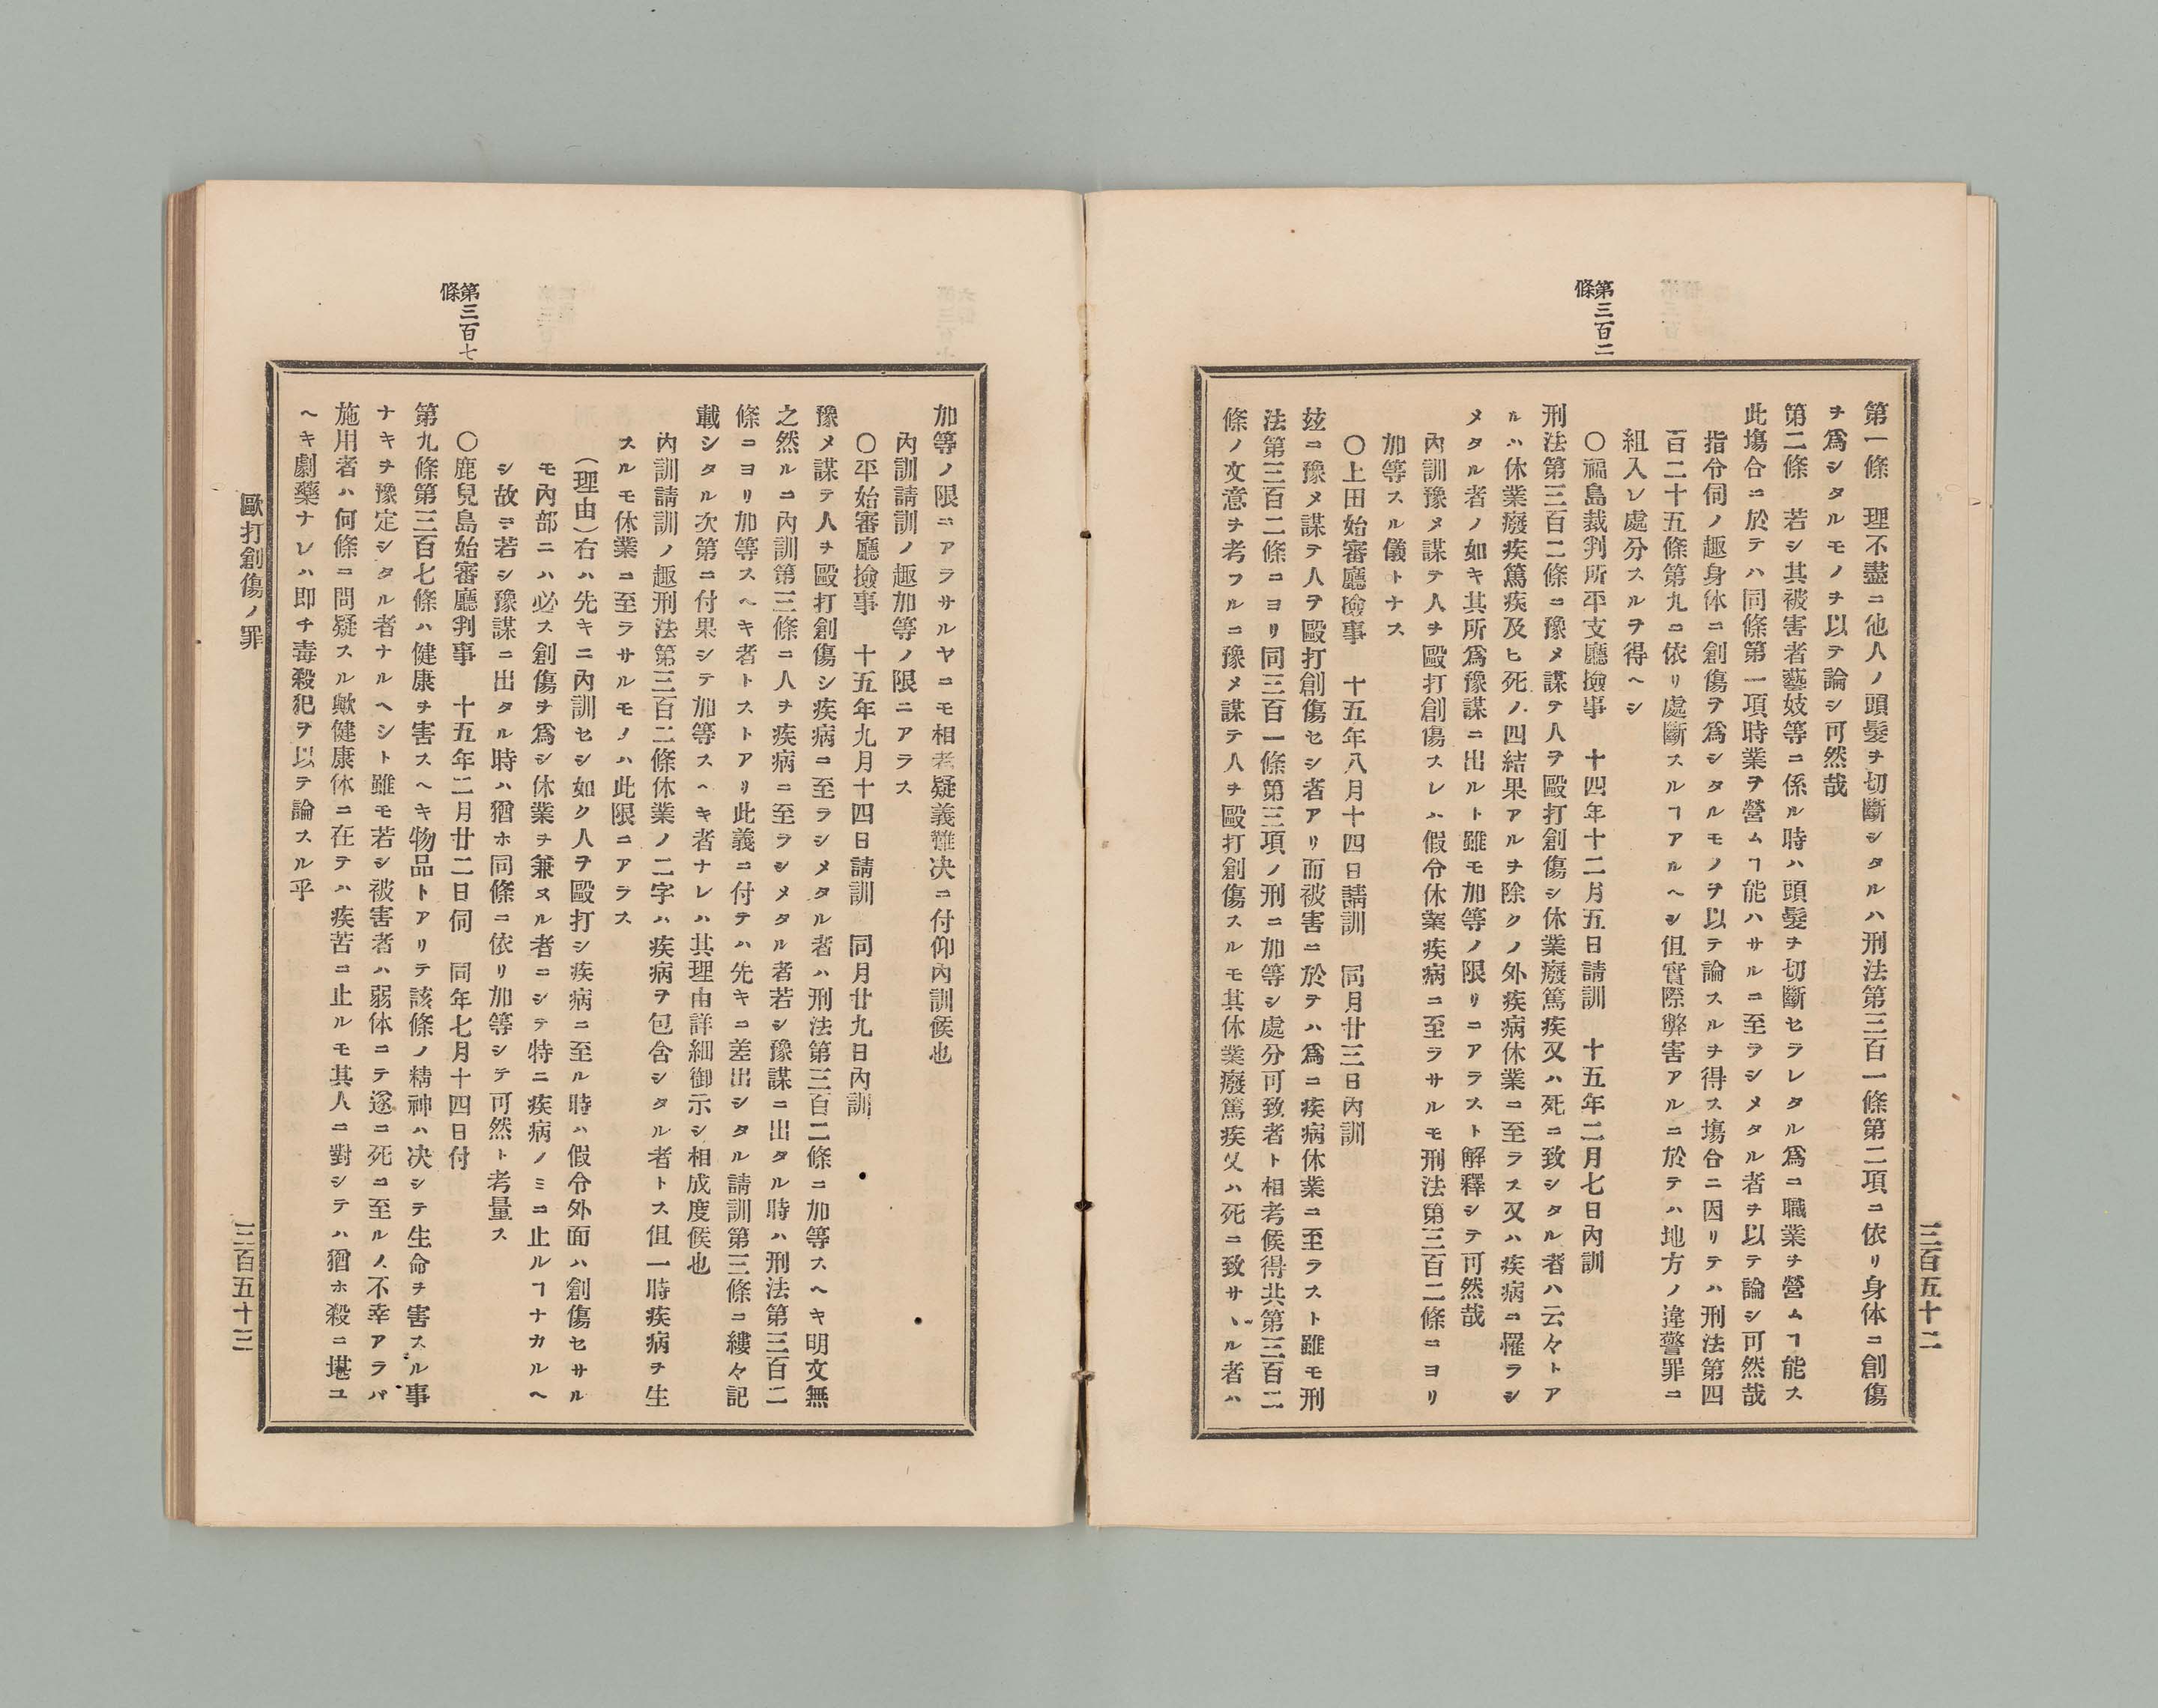 第三百二條
第一條　理不盡ニ他人ノ頭髮ヲ切斷シタルハ刑法第三百一條第二項ニ依リ身体ニ創傷
ヲ爲シタルモノヲ以テ論シ可然哉
第二條　若シ其被害者藝妓等ニ係ル時ハ頭髮ヲ切斷セラレタル爲ニ職業ヲ營ムヿ能ス
此塲合ニ於テハ同條第一項時業ヲ營ムヿ能ハサルニ至ラシメタル者ヲ以テ論シ可然哉
指令伺ノ趣身体ニ創傷ヲ爲シタルモノヲ以テ論スルヲ得ス塲合ニ因リテハ刑法第四
百二十五條第九ニ依リ處斷スルヿアルヘシ但實際弊害アルニ於テハ地方ノ違警罪ニ
組入レ處分スルヲ得ヘシ
〇福島裁判所平支廳撿事　十四年十二月五日請訓　十五年二月七日內訓
刑法第三百二條ニ豫メ謀テ人ヲ毆打創傷シ休業癈篤疾又ハ死ニ致シタル者ハ云々トア
ルハ休業癈疾篤疾及ヒ死ノ四結果アルヲ除クノ外疾病休業ニ至ラス又ハ疾病ニ罹ラシ
メタル者ノ如キ其所爲豫謀ニ出ルト雖モ加等ノ限リニアラスト解釋シテ可然哉
內訓豫メ謀テ人ヲ毆打創傷スレハ假令休業疾病ニ至ラサルモ刑法第三百二條ニヨリ
加等スル儀トナス
〇上田始審廳撿事　十五年八月十四日請訓　同月廿三日內訓
玆ニ豫メ謀テ人ヲ毆打創傷セシ者アリ而被害ニ於テハ爲ニ疾病休業ニ至ラスト雖モ刑
法第三百二條ニヨリ同三百一條第三項ノ刑ニ加等シ處分可致者ト相考候得共第三百二
條ノ文意ヲ考フルニ豫メ謀テ人ヲ毆打創傷スルモ其休業癈篤疾又ハ死ニ致サヽル者ハ
三百五十二
第三百七條
加等ノ限ニアラサルヤニモ相考疑義難决ニ付仰內訓候也
內訓請訓ノ趣加等ノ限ニアラス
〇平始審廳撿事　十五年九月十四日請訓　同月廿九日內訓
豫メ謀テ人ヲ毆打創傷シ疾病ニ至ラシメタル者ハ刑法第三百二條ニ加等スヘキ明文無
之然ルニ內訓第三條ニ人ヲ疾病ニ至ラシメタル者若シ豫謀ニ出タル時ハ刑法第三百二
條ニヨリ加等スヘキ者トストアリ此義ニ付テハ先キニ差出シタル請訓第三條ニ縷々記
載シタル次第ニ付果シテ加等スヘキ者ナレハ其理由詳細御示シ相成度候也
內訓請訓ノ趣刑法第三百二條休業ノ二字ハ疾病ヲ包含シタル者トス但一時疾病ヲ生
スルモ休業ニ至ラサルモノハ此限ニアラス
（理由）右ハ先キニ內訓セシ如ク人ヲ毆打シ疾病ニ至ル時ハ假令外面ハ創傷セサル
モ內部ニハ必ス創傷ヲ爲シ休業ヲ兼ヌル者ニシテ特ニ疾病ノミニ止ルヿナカルヘ
シ故ニ若シ豫謀ニ出タル時ハ猶ホ同條ニ依リ加等シテ可然ト考量ス
〇鹿兒島始審廳判事　十五年二月廿二日伺　同年七月十四日付
第九條第三百七條ハ健康ヲ害スヘキ物品トアリテ該條ノ精神ハ决シテ生命ヲ害スル事
ナキヲ豫定シタル者ナルヘシト雖モ若シ被害者ハ弱体ニテ遂ニ死ニ至ルノ不幸アラバ
施用者ハ何條ニ問疑スル歟健康体ニ在テハ疾苦ニ止ルモ其人ニ對シテハ猶ホ殺ニ堪ユ
ヘキ劇藥ナレハ即チ毒殺犯ヲ以テ論スル乎
歐打創傷ノ罪
三百五十三